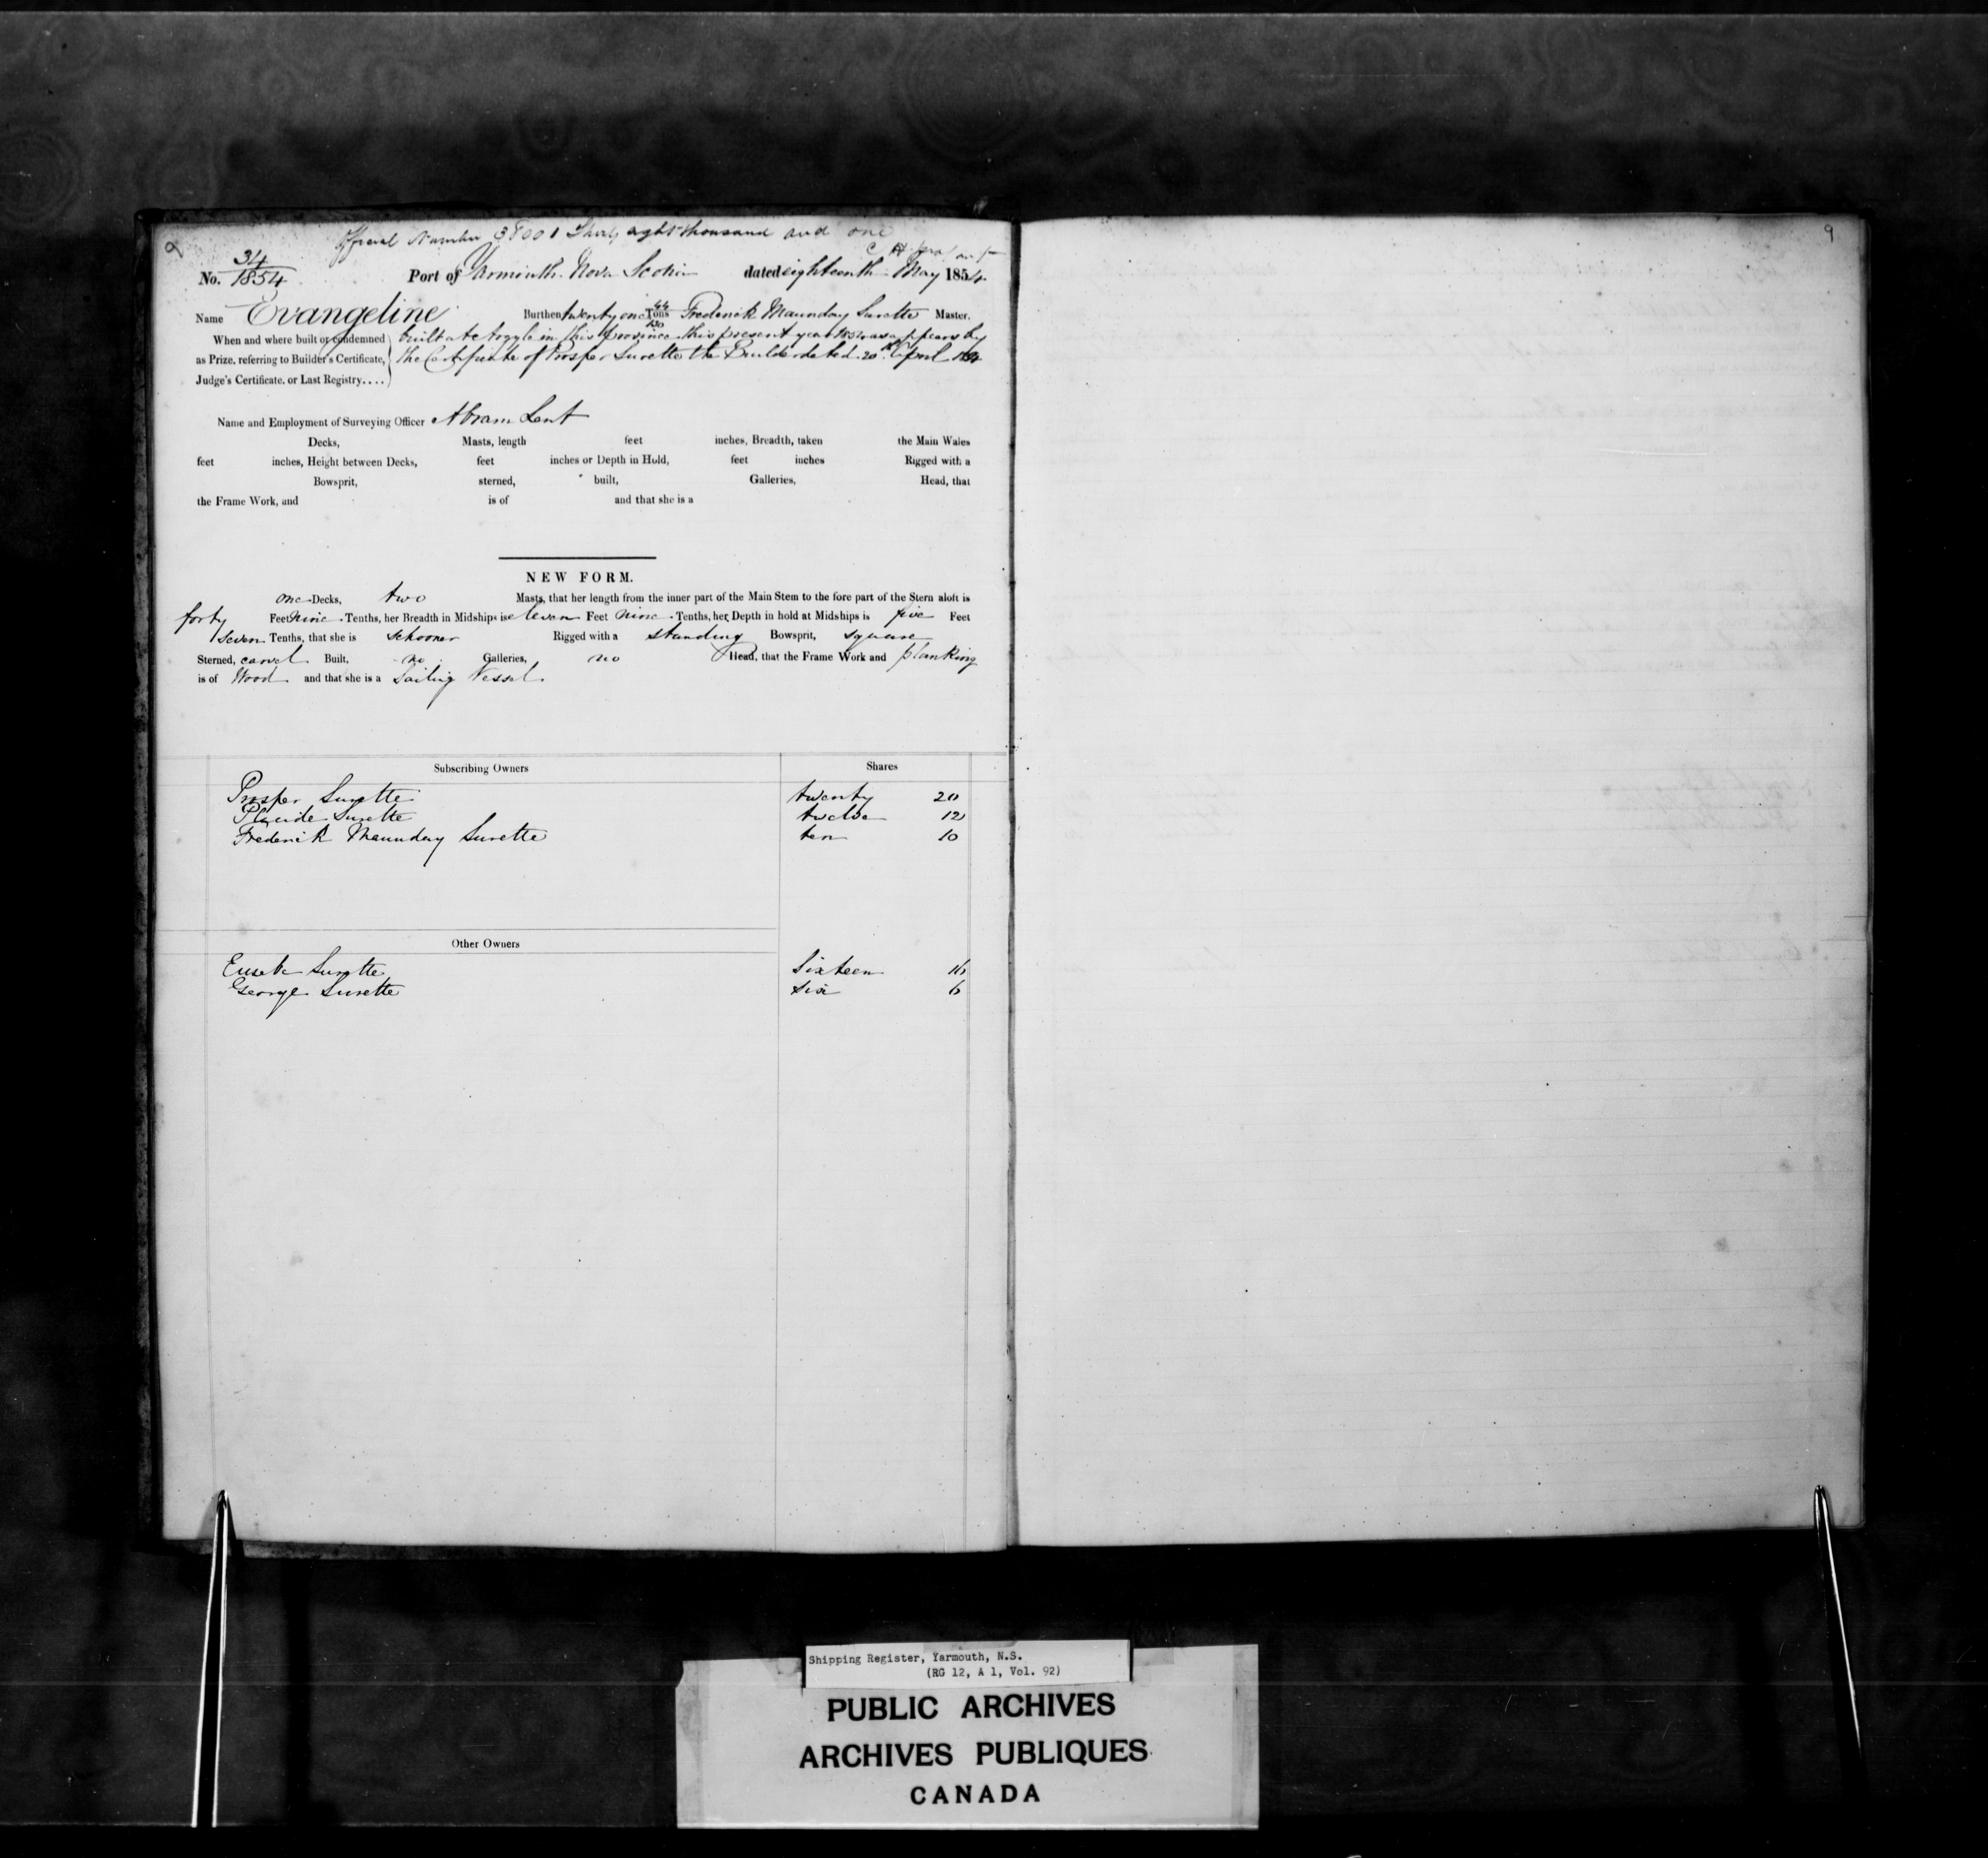 Official Number 38001 Thirty eight thousand and one
9
No. 34/1854 Port of Yarmouth Nova Scotia dated eighteenth May 1854
Name Evangeline Burthen twenty one 44/100 Tons Frederick Maunday Surette Master.
When and where built or condemned as Prize, referring to Builder's Certificate, Judge's Certificate, or Last Registry....
built at in this province this present year 1854 as appears by
the Certificate of Prosper Surette the Builder dated 20th April 1854
Name and Employment of Surveying Officer Abram Lent
Decks, Masts, length feet inches, Breadth, taken the Main Wales
feet inches, Height between Decks, feet inches or Depth in Hold, feet inches Rigged with a
Bowsprit, sterned, built, Galleries, Head, that
the Frame Work, and is of and that she is a
NEW FORM.
one Decks, two Masts, that her length from the inner part of the Main Stem to the fore part of the Stern aloft is
forty Feet nine Tenths, her Breadth in Midships is eleven Feet nine Tenths, her Depth in hold at Midships is five Feet
seven Tenths, that she is schooner Rigged with a standing Bowsprit, square
Sterned, carvel Built, no Galleries, no Head, that the Frame Work and planking
is of Wood and that she is a Sailing Vessel.
Subscribing Owners Shares
Prosper Surette twenty 20
Placide Surette twelve 12
Frederick Maunday Surette ten 10
Other Owners
Eusebe Surette Sixteen 16
George Surette six 6
Shipping Register, Yarmouth, N.S.
(RG 12, A 1, Vol. 92)
PUBLIC ARCHIVES
ARCHIVES PUBLIQUES
CANADA